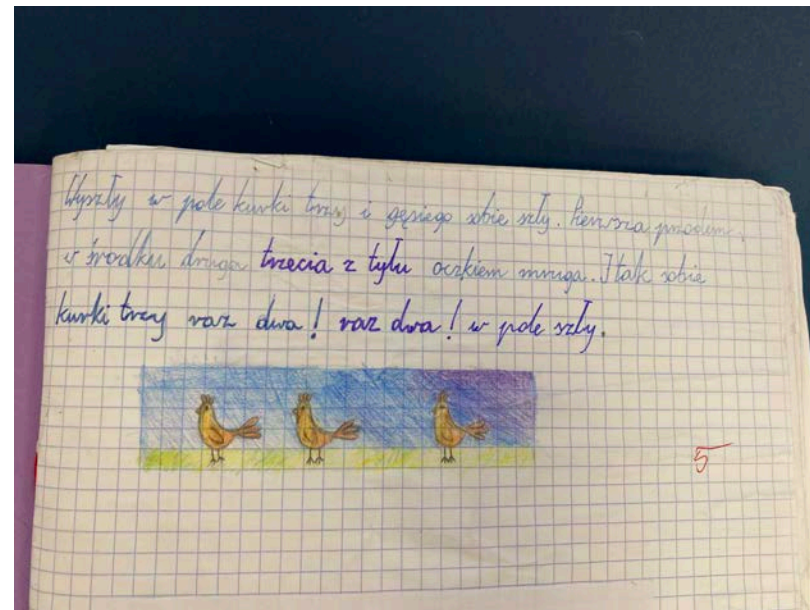 Wyszły w pole kurki trzy i gęsiego sobie szły. Pierwsza przodem,
w środku druga trzecia z tyłu oczkiem mruga. I tak sobie
kurki trzy raz dwa! raz dwa! w pole szły.
5